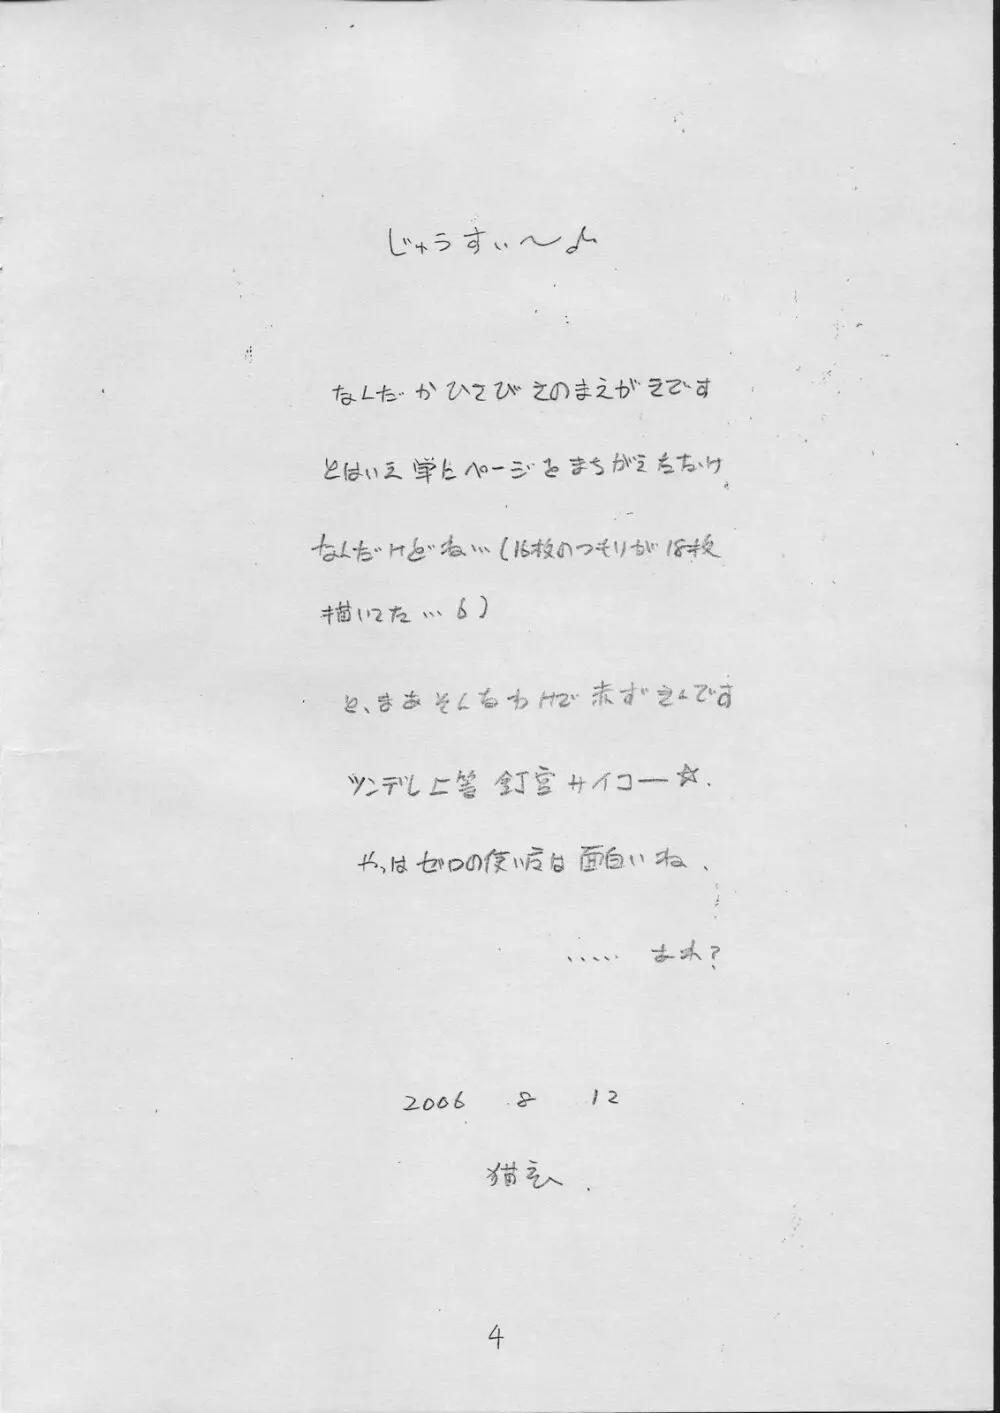 じゅうすぃ〜♪
なんだかひさびさのまえがきです
とはいえ単にページをまちがえただけ
なんだけどね…(16枚のつもりが18枚
描いてた…6)
と、まあそんなわけで赤ずきんです
ツンデレ上等 釘宮サイコー☆.
やっぱゼロの使い魔は面白いね.
..... あれ?
2006 8 12
猫玄.
4